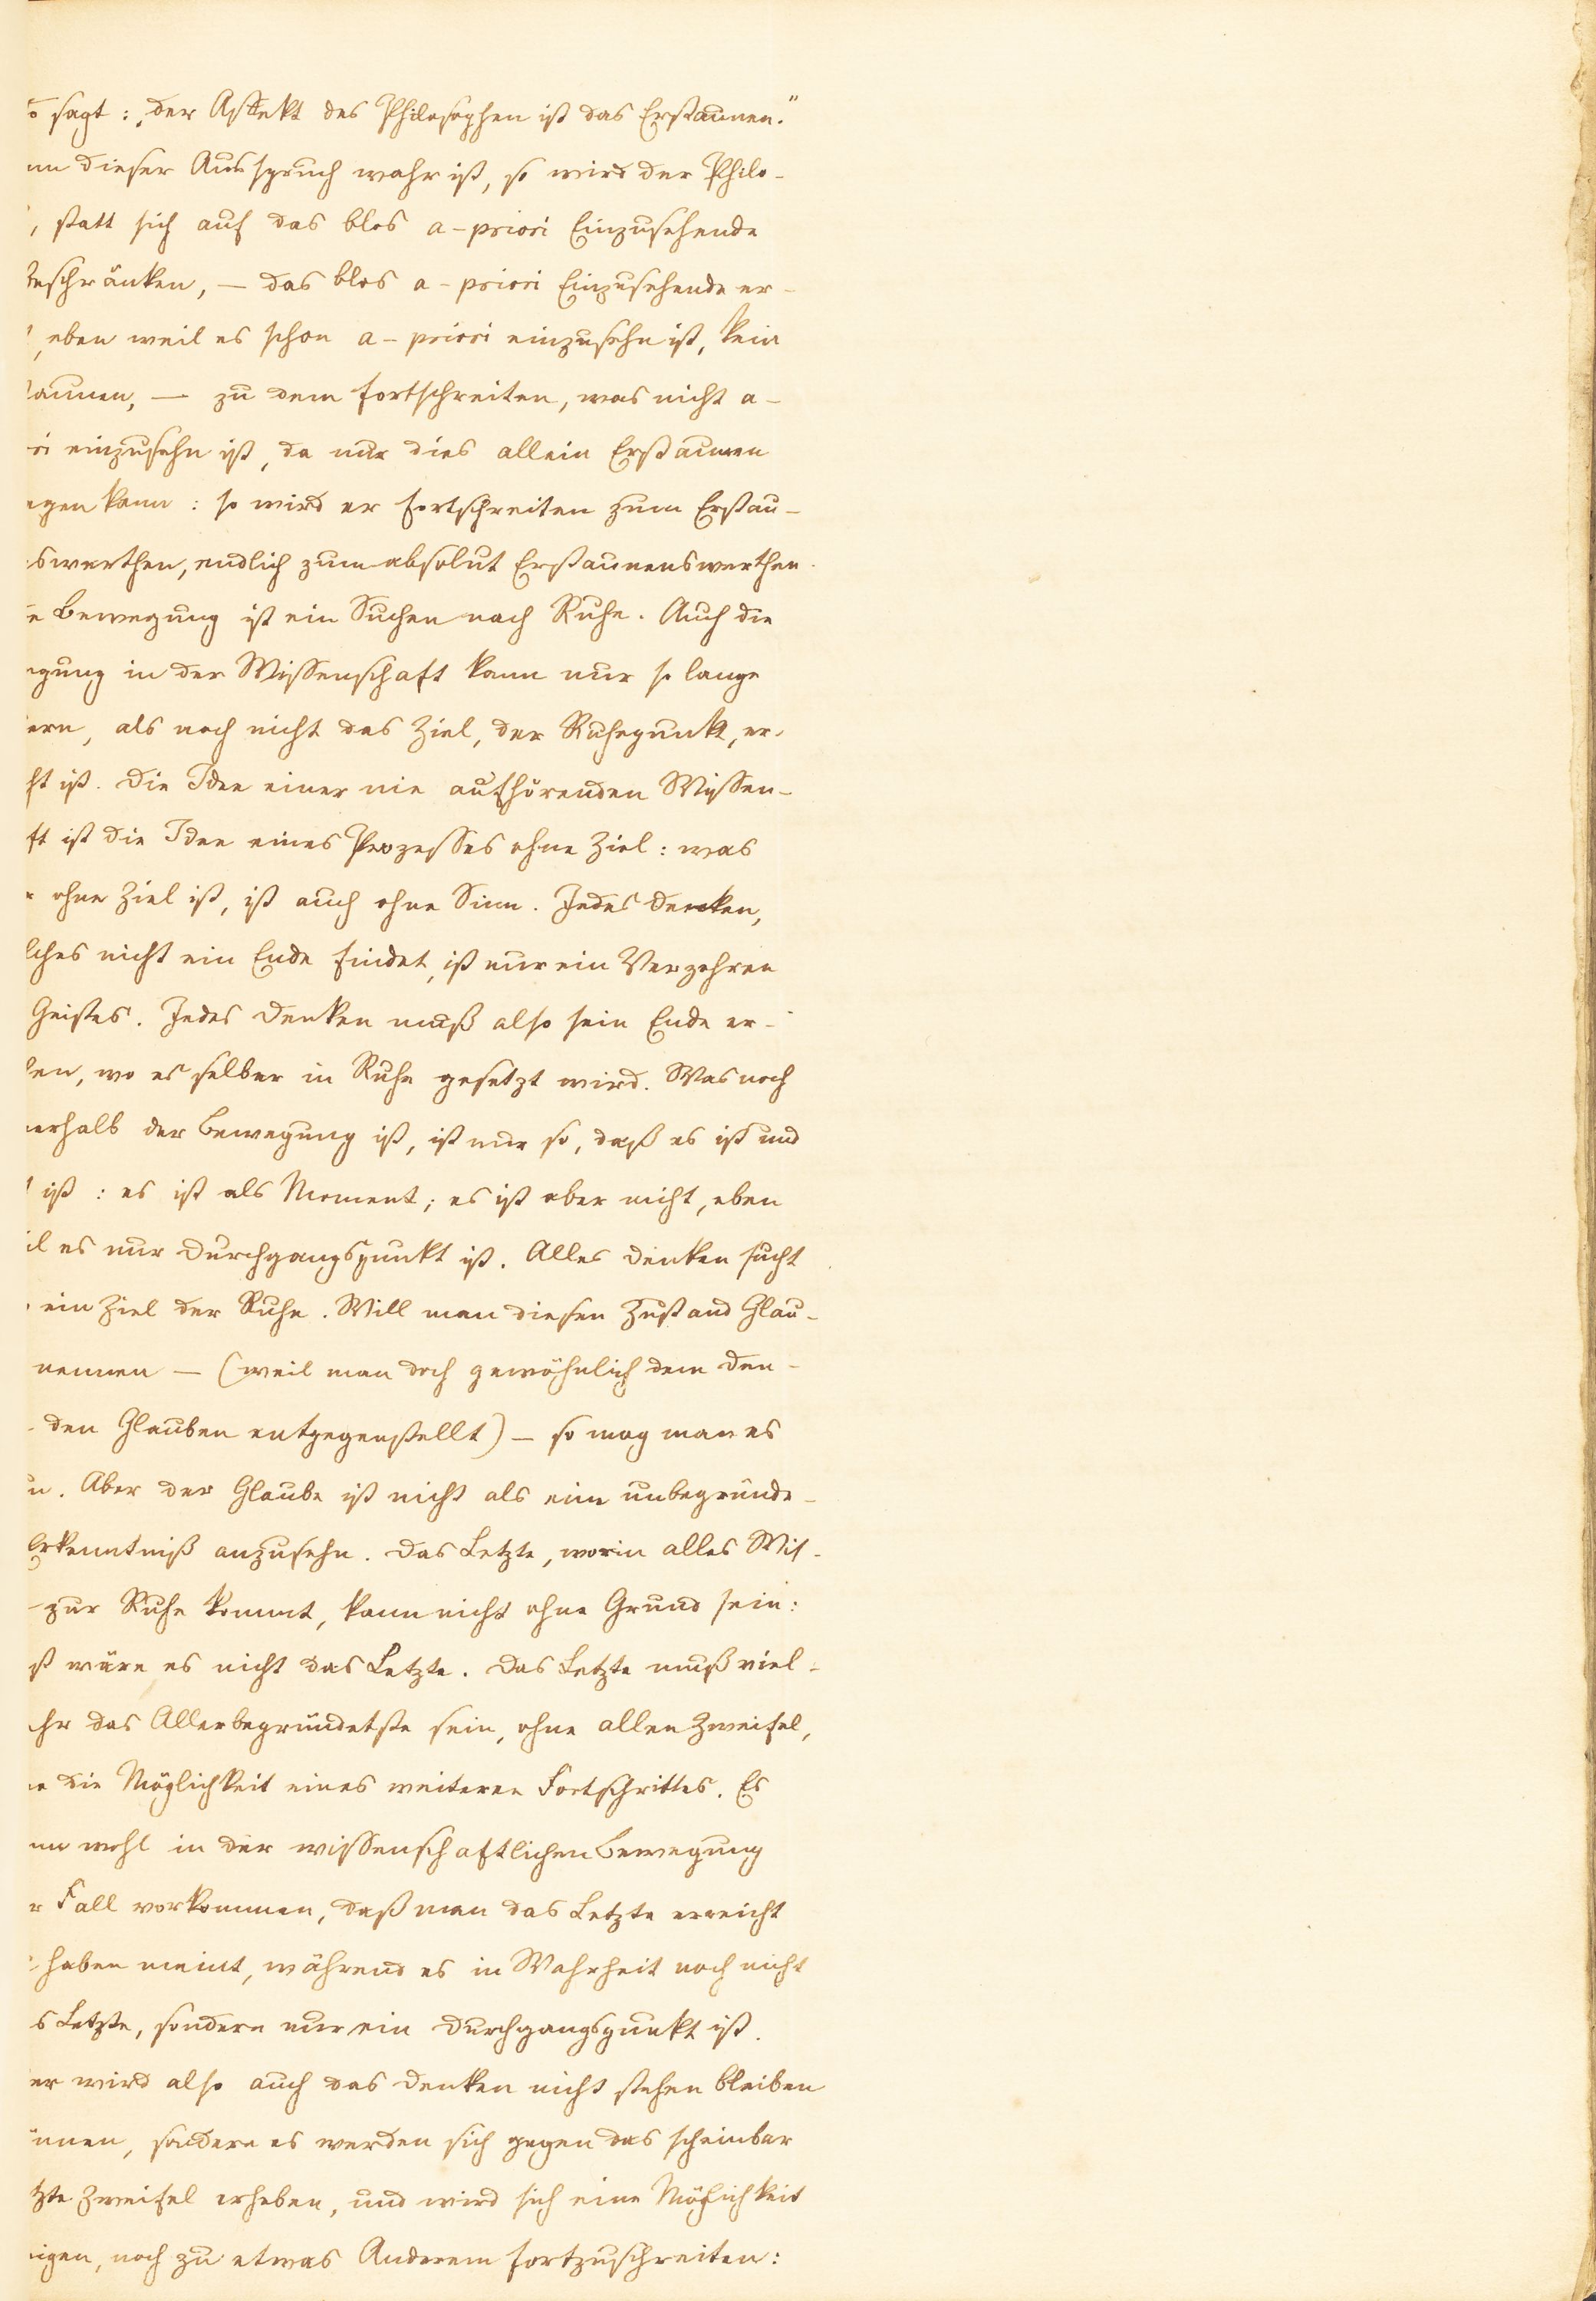 o sagt: „der Affekt des Philosophen ist das Erstaunen."
nn dieser Ausspruch wahr ist, so wird der Philo-
, statt sich auf das blos a-priori Einzusehende
beschränken, — das blos a-priori Einzusehende er-
, eben weil es schon a-priori einzusehn ist, kein
aunen, — zu dem fortschreiten, was nicht a-
ri einzusehn ist, da nur dies allein Erstaunen
egen kann: so wird er fortschreiten zum Erstau-
swerthen, endlich zum absolut Erstaunenswerthen.
e Bewegung ist ein Suchen nach Ruhe. Auch die
egung in der Wissenschaft kann nur so lange
ern, als noch nicht das Ziel, der Ruhepunkt, er-
cht ist. Die Idee einer nie aufhörenden Wissen-
ft ist die Idee eines Prozesses ohne Ziel: was
r ohne Ziel ist, ist auch ohne Sinn. Jedes Denken,
lches nicht ein Ende findet, ist nur ein Verzehren
Geistes. Jedes Denken muß also sein Ende er-
len, wo es selber in Ruhe gesetzt wird. Was noch
nerhalb der Bewegung ist, ist nur so, daß es ist und
t ist: es ist als Moment; es ist aber nicht, eben
il es nur Durchgangspunkt ist. Alles Denken sucht
ein Ziel der Ruhe. Will man diesen Zustand Glau-
nennen — (weil man doch gewöhnlich dem Den-
den Glauben entgegenstellt) — so mag man es
n. Aber der Glaube ist nicht als eine unbegründe-
Erkenntniß anzusehn. Das Letzte, worin alles Wis-
zur Ruhe kommt, kann nicht ohne Grund sein:
st wäre es nicht das Letzte. Das Letzte muß viel-
hr das Allerbegründetste sein, ohne allen Zweifel,
ne die Möglichkeit eines weiteren Fortschrittes. Es
nn wohl in der wissenschaftlichen Bewegung
r Fall vorkommen, daß man das Letzte erreicht
haben meint, während es in Wahrheit noch nicht
s Letzte, sondern nur ein Durchgangspunkt ist.
er wird also auch das Denken nicht stehen bleiben
önnen, sondern es werden sich gegen das scheinbar
tzte Zweifel erheben, und wird sich eine Möglichkeit
igen, noch zu etwas Anderem fortzuschreiten: